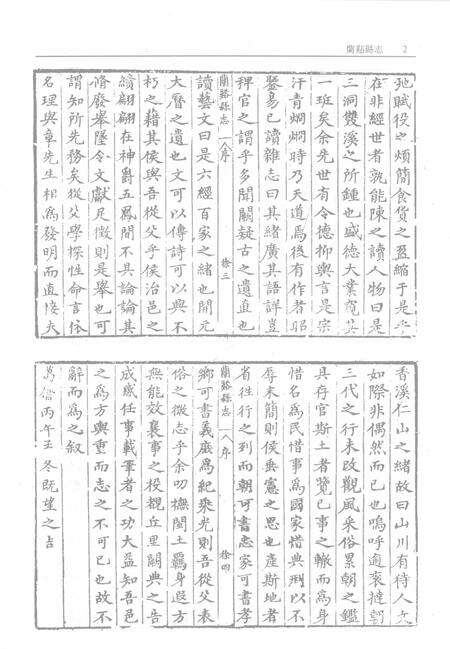 蘭谿縣志 2
弛賦役之煩簡食貨之盈縮于是乎
在非經世者孰能陳之讀人物曰是
三洞雙溪之所鍾也盛德大業寬其
一班矣余先世有令德抑輿言是宗
汗青燜燜時乃天道爲後有作者昭
鑒易已讀雜志曰其緒廣其語詳豈
稗官之謂乎多聞闕疑古之遺直也
蘭谿縣志 序 徐三
讀藝文曰是六經百家之緒也開元
大曆之遺也文可以傳詩可以興不
朽之藉其侯與吾從父乎侯治邑之
續翩翩在神爵五鳳間不具論論其
脩廢舉墜令文獻足徵則是舉也可
謂知所先務矣從父學探性命言倍
名理與章先生相爲發明而直接夫
香溪仁山之緒故曰山川有待人文
如際非偶然而已也嗚呼適裘撻朝
三代之行未改觀風采俗累朝之鑑
具存官斯土者覽已事之轍而爲身
惜名爲民惜事爲國家惜典刑以不
辱末簡則侯垂憲之思也產斯地者
省往行之列而朝可書忠家可書孝
蘭谿縣志 序 徐四
鄉可書義廐爲紀桒光則吾從父表
俗之微志乎余叨撫閩土羈身遐方
無能效襄事之役覩丘里嗣典之告
成感任事載筆者之功大益知吾邑
之爲方輿重而志之不可已也故不
辭而爲之叙
萬曆丙午玉冬既望之吉